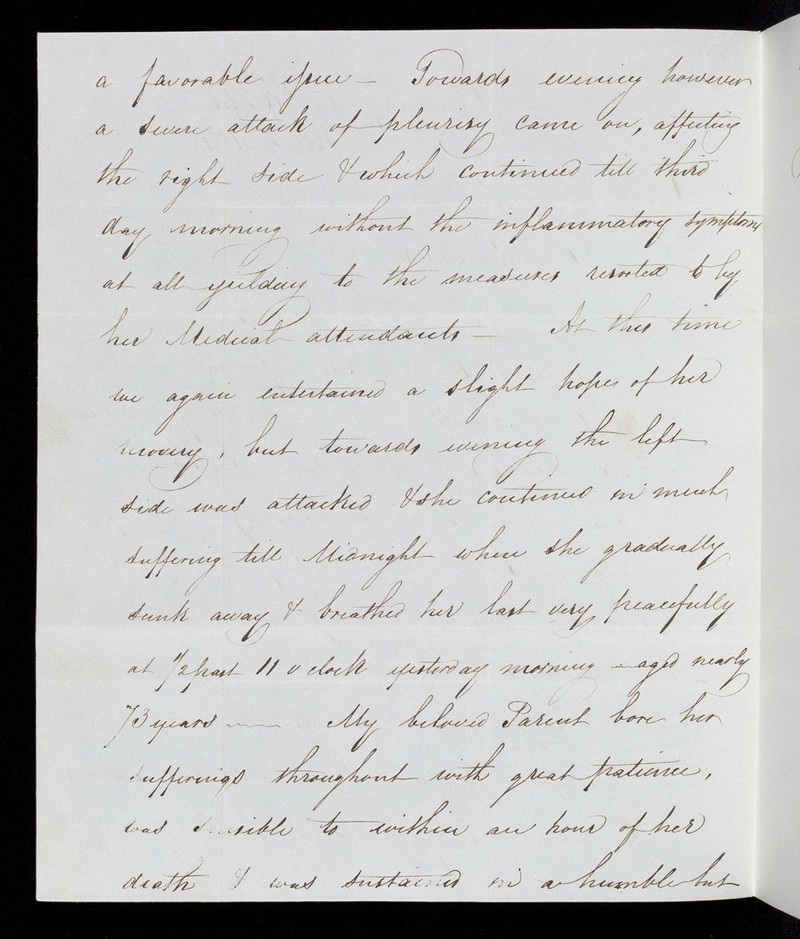 a favorable issue — Towards evening however
a severe attack of pleurisy came on, affecting
the right side & which continued till third
day morning without the inflammatory symptoms
at all yeilding to the measures resorted to by
her Medical attendants — At this time
we again entertained a slight hopes of her
recovery, but towards evening the left
side was attacked & she continued in much
suffering till Midnight when she gradually
sunk away & breathed her last very peacefully
at 1/2 past 11 o clock yesterday morning — aged nearly
73 years — My beloved Parent bore her
sufferings throughout with great patience,
was sensible to within an hour of her
death & was sustained in a humble but